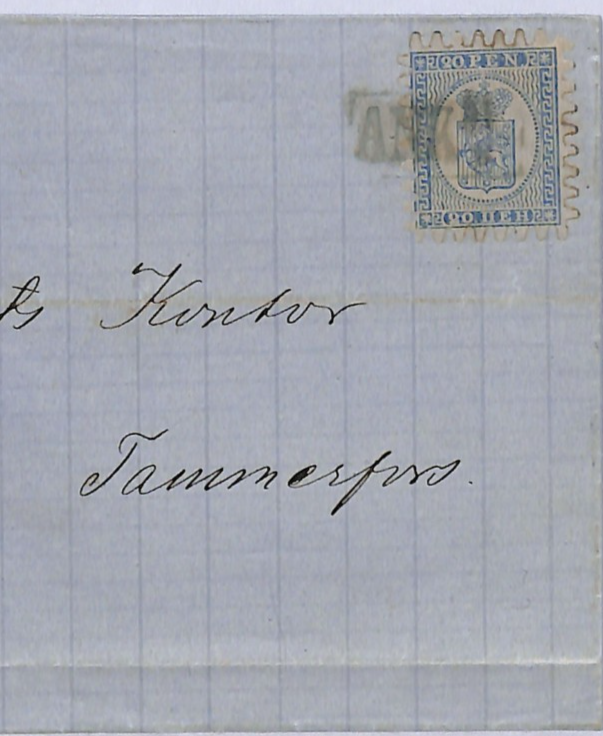 20 PEN.
20 ПЕН
Kontor
Tammerfors.